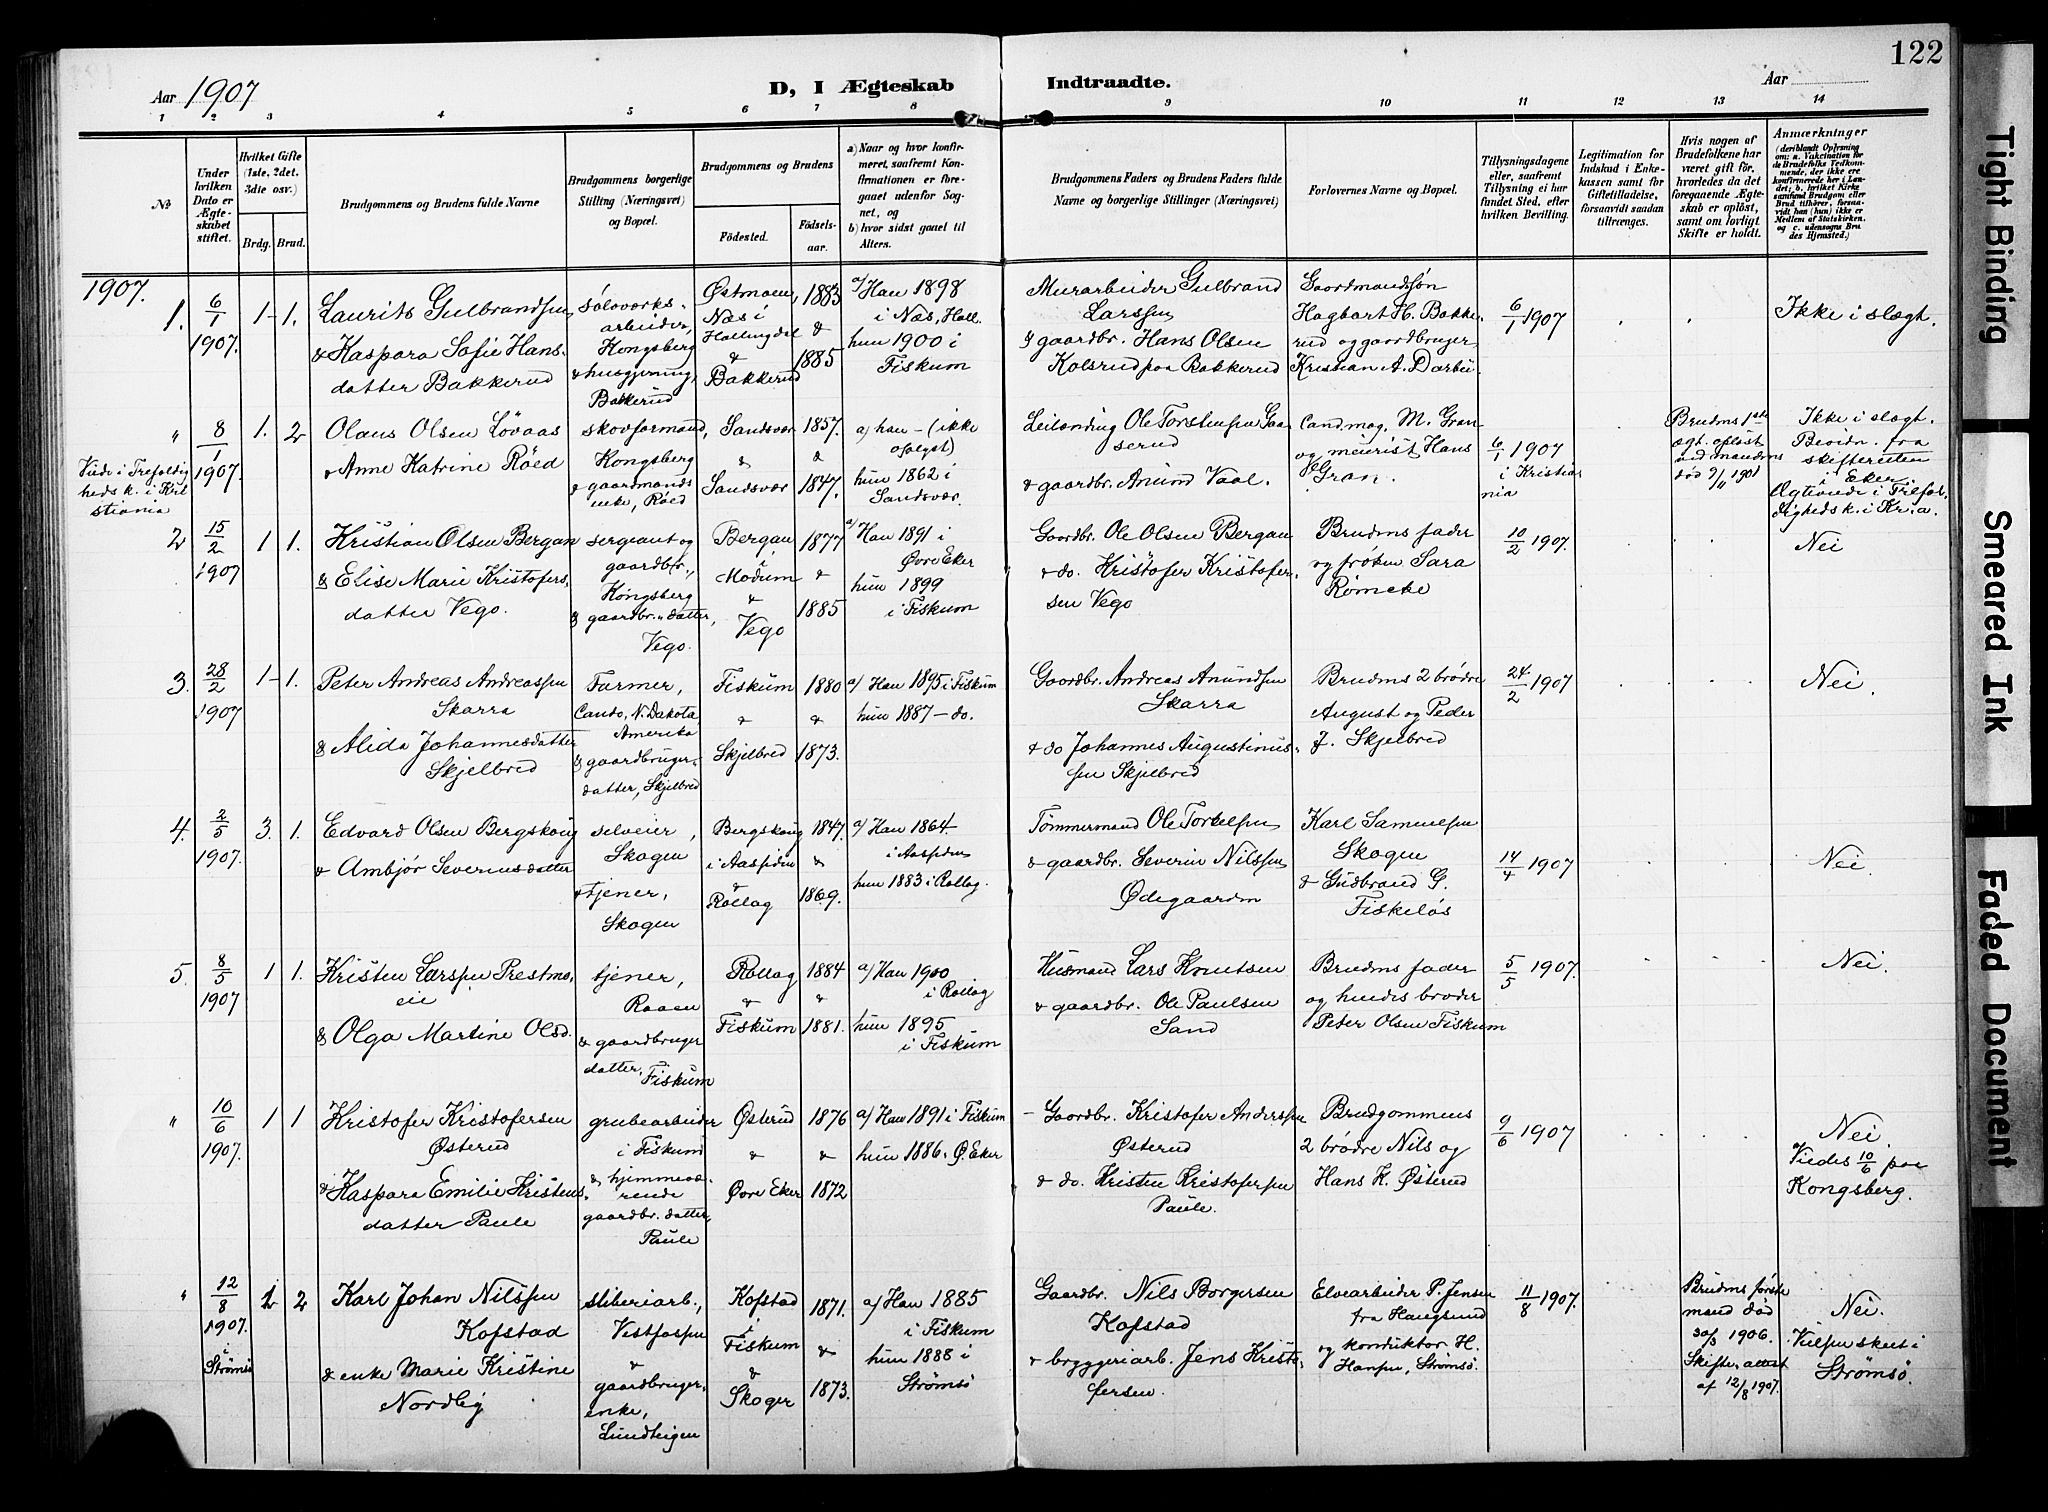 122
Aar 1907
D, I Ægteskab
Indtraadte.
Aar
1 2 3 4 5 6 7 8 9 10 11 12 13 14
No
Under
hvilken
Dato er
Ægte-
skabet
stiftet.
Hvilket Gifte
(1ste, 2det.
3die osv.)
Brdg. Brud.
Brudgommens og Brudens fulde Navne
Brudgommens borgerlige
Stilling (Næringsvei)
og Bopæl.
Brudgommens og Brudens
Födested.
Födsels-
aar.
a) Naar og hvor konfir-
meret, saafremt Kon-
firmationen er fore-
gaaet udenfor Sog-
net, og
b) hvor sidst gaaet til
Alters.
Brudgommens Faders og Brudens Faders fulde
Navne og borgerlige Stillinger (Næringsvei)
Forlovernes Navne og Bopæl.
Tillysningsdagene
eller, saafremt
Tillysning ei har
fundet Sted, efter
hvilken Bevilling.
Legitimation for
Indskud i Enke-
kassen samt for
Giftetilladelse,
forsaavidt saadan
tiltrænges.
Hvis nogen af
Brudefolkene har
været gift för,
hvorledes da det
foregaaende Ægte-
skab er oplöst,
samt om lovligt
Skifte er holdt.
Anmærkninger
(deriblandt Oplysning
om: a. Vakcination for
de Brudefolks Vedkom-
mende, der ikke ere
konfirmerede her i Lan-
det; b. hvilket Kirke
samfund Brudgom eller
Brud tilhörer, forsaa-
vidt han (hun) ikke er
Medlem af Statskirken.
og c. udensogns Bru
des Hjemsted.)
1907.
1. 6/1 1907. 1 - 1.
Laurits Gulbrandsen
& Kaspara Sofie Hans-
datter Bakkerud
sølvverks-
arbeider,
Kongsberg
& husgjerning,
Bakkerud
Østmoen,
Næs i
Hallingdal
&
Bakkerud
1883
&
1885
a/ Han 1898
i Næs, Hall.
hun 1900 i
Fiskum
Murarbeider Gulbrand
Larssen
& gaardbr. Hans Olsen
Kolsrud paa Bakkerud
Gaardmandsøn
Hagbart H. Bakke-
rud og gaardbruger
Kristian A. Darbu.
6/1 1907
Ikke i slægt.
" 8/1 1907. 1. 2
Viede i Trefoldig
hedsk. i Kri
stiania
Olaus Olsen Løvaas
& Anne Katrine Røed
skovformand,
Kongsberg
& gaardmands
enke, Røed
Sandsvær
&
Sandsvær
1857.
&
1847.
a) han - (ikke
opgivet)
hun 1862 i
Sandsvær.
Leilending Ole Torstensen Gaa
serud
& gaardbr. Anund Vaal.
Cand. mag. M. Gran
og meierist Hans
Gran.
6/1 1907
i Kristia
nia
Brudens 1ste
ægt. opløst
ved mandens
død 9/11 1901
Ikke i slægt.
Bevidn. fra
skifteretten
i Eker
Ægtiviede i Trefol-
dighedsk. i Kr.a.
2 15/2 1907 1 1.
Kristian Olsen Bergan
& Elise Marie Kristofers-
datter Vego.
sergeant og
gaardbr.,
Kongsberg
& gaardbr. datter,
Vego.
Bergan
i
Modum
&
Vego
1877
&
1885
a/ Han 1891 i
Øvre Eker
hun 1899
i Fiskum
Gaardbr. Ole Olsen Bergan
& do. Kristofer Kristofer-
sen Vego
Brudens fader
og frøken Sara
Rømcke
10/2 1907.
Nei
3. 28/2 1907 1 - 1.
Peter Andreas Andreassen
Skarra
& Alida Johannesdatter
Skjelbred
Farmer,
Cando, N. Dakota,
Amerika
& gaardbruger-
datter, Skjelbred
Fiskum
&
Skjelbred
1880
&
1873.
a/ Han 1895 i Fiskum
hun 1887 - do.
Gaardbr. Andreas Anundsen
Skarra
& do Johannes Augustinus-
sen Skjelbred
Brudens 2 brødre
August og Peder
J. Skjelbred
24/2 1907
Nei.
4. 2/5 1907. 3. 1.
Edvard Olsen Bergskaug
& Ambjør Severinsdatter
selveier,
Skogen
& tjener,
Skogen
Bergskaug
i Aaspiden
&
Rollag
1847.
&
1869.
a/ Han 1864
i Aaspiden
hun 1883 i Rollag.
Tømmermand Ole Torkelsen
& gaardbr. Severin Nilssen
Ødegaarden
Karl Samuelsen
Skogen
& Gudbrand G.
Fiskeløs
14/4 1907
Nei.
5. 8/5 1907 1 1.
Kristen Larssen Prestmo-
eie
& Olga Martine Olsd.
tjener,
Raaen
& gaardbruger
datter, Fiskum
Rollag
&
Fiskum
1884
&
1881.
a/ Han 1900
i Rollag
hun 1895
i Fiskum
Husmand Lars Knutsen
& gaardbr. Ole Paulsen
Sand
Brudens fader
og hendes broder
Peter Olsen Fiskum
5/5 1907.
Nei.
" 10/6 1907. 1 1
Kristofer Kristofersen
Østerud
& Kaspara Emilie Kristens-
datter Paule
grubearbeider
i Fiskum
& hjemmevæ-
rende
gaardbr. datter,
Paule
Østerud
&
Øvre Eker
1876
&
1872
a/ Han 1891 i Fiskum
hun 1886 Ø. Eker
Gaardbr. Kristofer Anderssen
Østerud
& do. Kristen Kristofersen
Paule.
Brudgommens
2 brødre Nils og
Hans K. Østerud
9/6 1907
Nei.
Viedes 10/6 paa
Kongsberg.
" 12/8 1907. i Strømsø 2
Karl Johan Nilssen
Kofstad
& enke Marie Kristine
Nordby
sliberiarb.,
Vestfossen
&
gaardbruger-
enke,
Lundteigen
Kofstad
i
Fiskum
&
Skoger
1871.
&
1873.
a/ Han 1885
i Fiskum
hun 1888 i
Strømsø
Gaardbr. Nils Borgersen
Kofstad
& bryggeriarb. Jens Kristo-
fersen.
Elvearbeider P. Jensen
fra Haugsund
og konduktør H.
Hansen, Strømsø.
11/8 1907.
Brudens første
mand død
30/3 1906.
Skifte-attest
af 12/8 1907.
Nei.
Vielsen skeet i
Strømsø.
Tight Binding
Smeared Ink
Faded Document